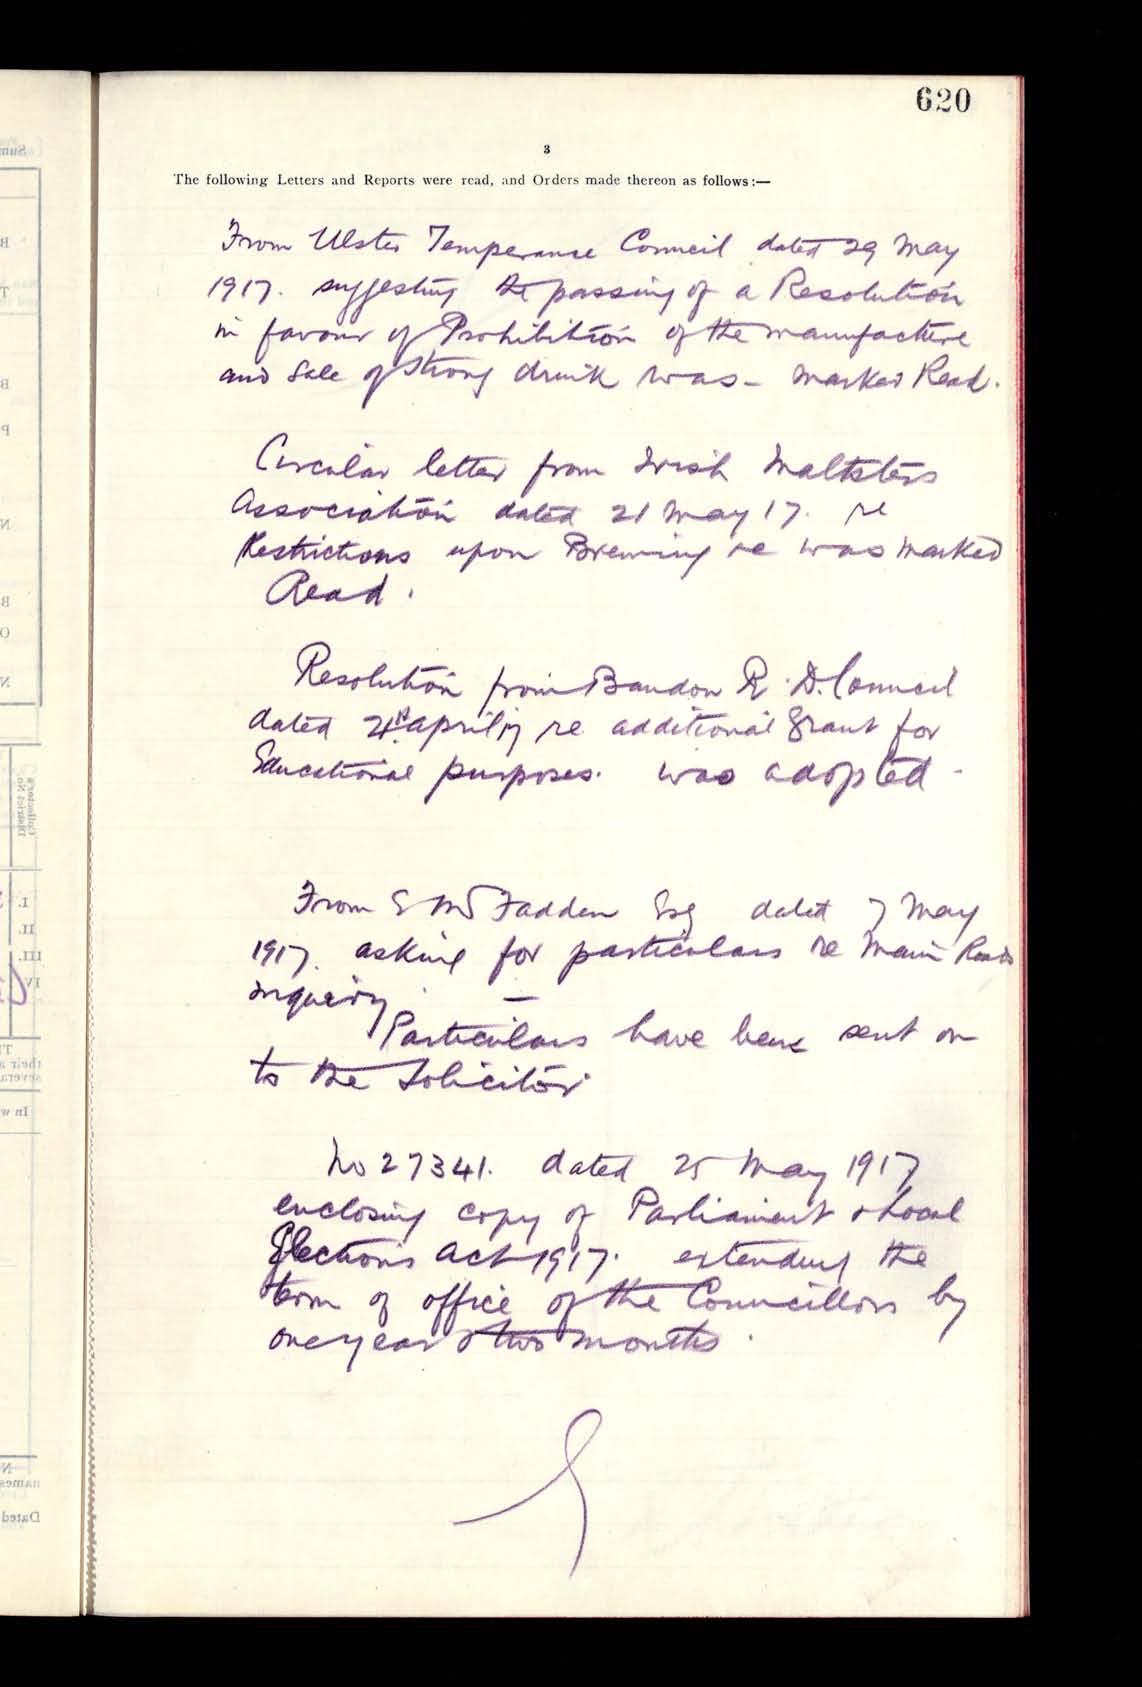 620
3
The following Letters and Reports were read, and Orders made thereon as follows:—
From Ulster Temperance Council dated 29 May
1917. suggesting the passing of a Resolution
in favour of Prohibition of the manufacture
and Sale of Strong drink was - marked Read.
Circular letter from Irish Maltsters
Association dated 21 May 17. re
Restrictions upon Brewing re was marked
Read.
Resolution from Bandon R. D. Council
dated 21st april 17 re additional Grant for
Educational purposes. was adopted -
From E McFadden Esq dated 7 May
1917. asking for particulars re Main Roads
inquiry. —
Particulars have been sent on
to the Solicitor
No 27341. dated 25 May 1917
enclosing copy of Parliament & Local
Elections Act 1917. extending the
term of office of the Councillors by
one year & two months.